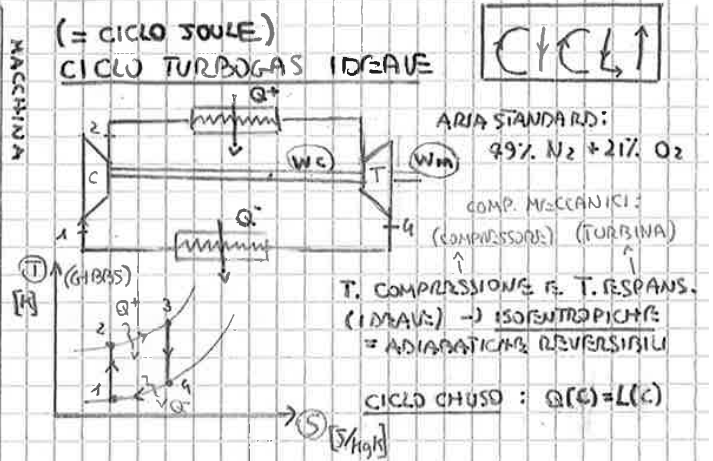 (= CICLO JOULE)
CICLO TURBOGAS IDEALE
MACCHINA
Q+
2
C
Wc
T
Wm
1
Q-
4
ARIA STANDARD:
79% N2 + 21% O2
COMP. MECCANICI:
(COMPRESSORE) (TURBINA)
T. COMPRESSIONE E T. ESPANS.
(IDEALE) → ISOENTROPICHE
= ADIABATICHE REVERSIBILI
CICLO CHIUSO : Q(C)=L(C)
T
[K]
(GIBBS)
Q+
3
2
1
4
Q-
S
[J/kgK]